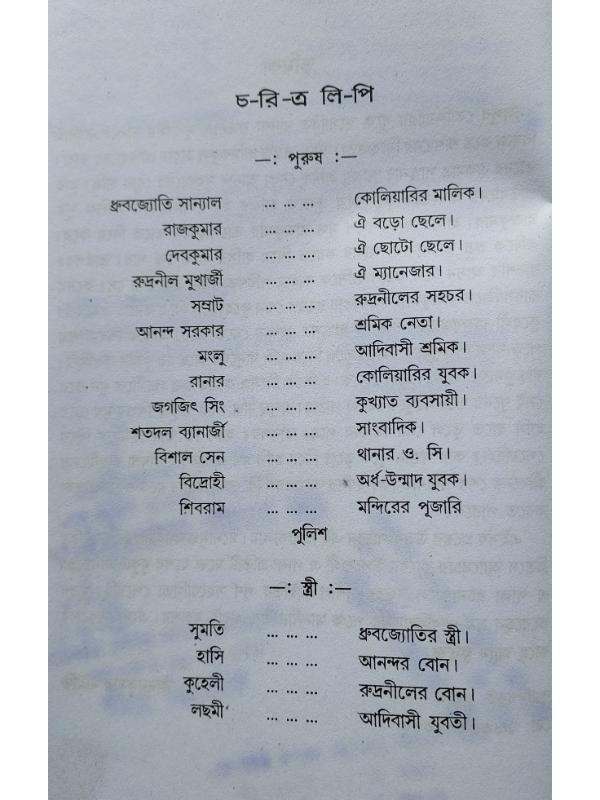 চ-রি-ত্র লি-পি
—: পুরুষ :—
ধ্রুবজ্যোতি সান্যাল ... ... ... কোলিয়ারির মালিক।
রাজকুমার ... ... ... ঐ বড়ো ছেলে।
দেবকুমার ... ... ... ঐ ছোটো ছেলে।
রুদ্রনীল মুখার্জী ... ... ... ঐ ম্যানেজার।
সম্রাট ... ... ... রুদ্রনীলের সহচর।
আনন্দ সরকার ... ... ... শ্রমিক নেতা।
মংলু ... ... ... আদিবাসী শ্রমিক।
রানার ... ... ... কোলিয়ারির যুবক।
জগজিৎ সিং ... ... ... কুখ্যাত ব্যবসায়ী।
শতদল ব্যানার্জী ... ... ... সাংবাদিক।
বিশাল সেন ... ... ... থানার ও. সি।
বিদ্রোহী ... ... ... অর্ধ-উন্মাদ যুবক।
শিবরাম ... ... ... মন্দিরের পূজারি
পুলিশ
—: স্ত্রী :—
সুমতি ... ... ... ধ্রুবজ্যোতির স্ত্রী।
হাসি ... ... ... আনন্দর বোন।
কুহেলী ... ... ... রুদ্রনীলের বোন।
লছমী ... ... ... আদিবাসী যুবতী।